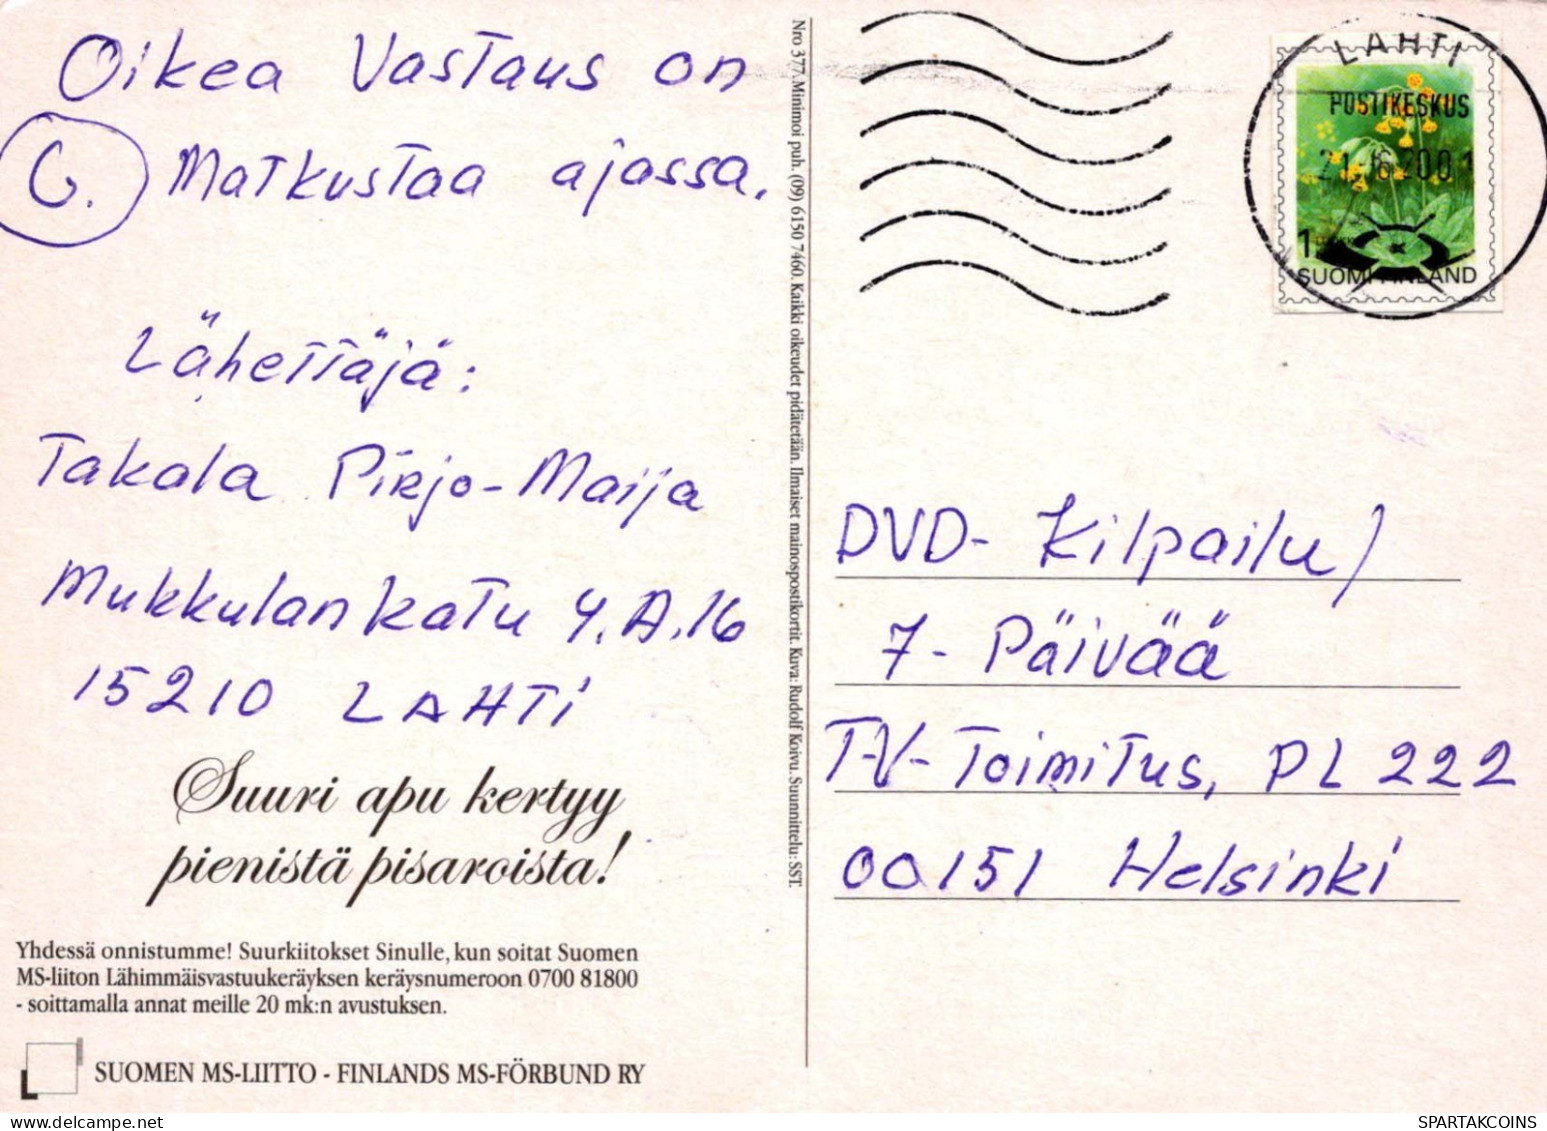 Oikea Vastaus on
C. Matkustaa ajassa.
Lähettäjä:
Takala Pirjo-Maija
Mukkulankatu 4.A.16
15210 LAHTI
Suuri apu kertyy
pienistä pisaroista!
Yhdessä onnistumme! Suurkiitokset Sinulle, kun soitat Suomen
MS-liiton Lähimmäisvastuukeräyksen keräysnumeroon 0700 81800
- soittamalla annat meille 20 mk:n avustuksen.
SUOMEN MS-LIITTO - FINLANDS MS-FÖRBUND RY
Nro 377. Minimoi puh. (09) 6150 7460. Kaikki oikeudet pidätetään. Ilmaiset mainospostikortit. Kuva: Rudolf Koivu. Suunnittelu: SST.
LAHTI
POSTIKESKUS
21.-6.2001
1
SUOMI FINLAND
DVD-Kilpailu/
7-Päivää
TV-Toimitus, PL 222
00151 Helsinki
SPARTAKCOINS